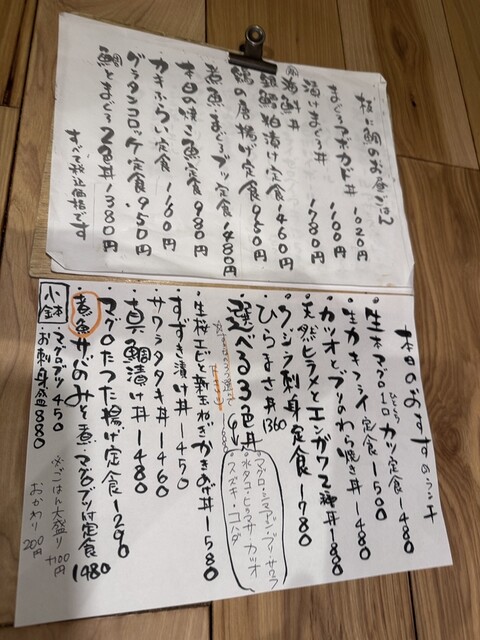 桜に鯛のお昼ごはん
まぐろアボカド丼 1020円
漬けまぐろ丼 1100円
海鮮丼 1780円
銀鱈粕漬け定食 1460円
鶏の唐揚げ定食 950円
煮魚・まぐろブツ定食 1480円
本日の焼き魚定食 980円
カキふらい定食 1160円
グラタンコロッケ定食 950円
鯛とまぐろ2色丼 1380円
すべて税込価格です
本日のおすすめランチ
・生本マグロ1口カツ定食 1480
ひとくち
・生カキフライ定食 1500
・カツオとブリのわら焼き丼 1480
・天然ヒラメとエンガワ2種丼 1800
・クジラ刺身定食 1780
・ひらまさ丼 1360
・選べる3色丼
マグロ・シマアジ・ブリ・サワラ
水タコ・ヒラマサ・カツオ
スズキ・コハダ
・生桜エビと新玉ねぎかきあげ丼 1580
・すずき漬け丼 1450
・サワラタタキ丼 1460
・真鯛漬け丼 1480
・マグロたつた揚げ定食 1290
・煮魚サバのみそ煮 マグロブツ付定食 1480
小鉢
マグロブツ 450
お刺身盛 880
※ごはん大盛り+100円
おかわり 200円